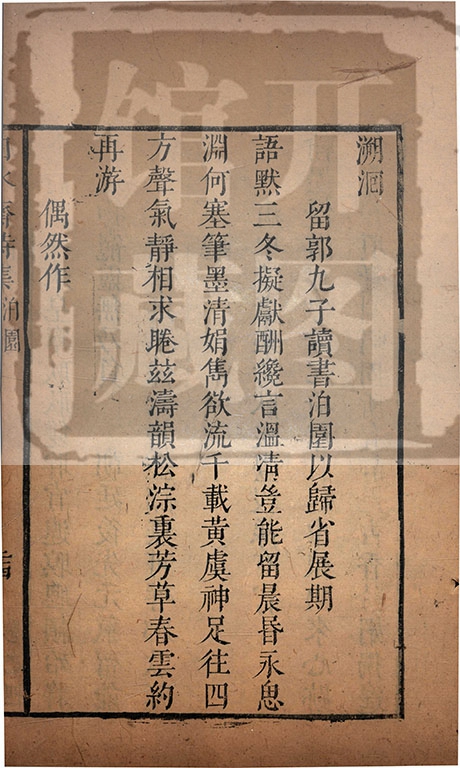 溯洄
留郭九子讀書泊園以歸省展期
語默三冬擬獻酬纔言溫凊豈能留晨昏永思
淵何塞筆墨清娟雋欲流千載黃虞神足往四
方聲氣靜相求睠茲濤韻松淙裏芳草春雲約
再游
偶然作
齋詩集泊園